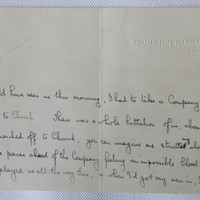 ld have seen us this morning, I had to take a Company
to Church. There was a whole battalion of us, abou
marched off to Church, you can imagine me strutted abo
paces ahead of the Company feeling an impossible blood
played us all the way there, & when I'd got my men in, I